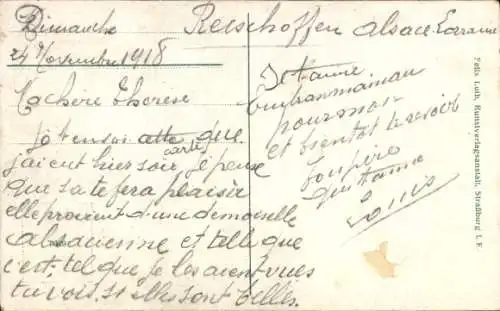 Dimanche
24 Novembre 1918
Reischoffen Alsace Lorraine
Ma chère Thérèse
je t'envoi cette carte que
j'ai eut hier soir. je pense
que sa te fera plaisir
elle provient d'une demoiselle
alsacienne et telle que
c'est, tel que je les aient vues
tu vois. si elles sont belles.
Je t'aime
Embrasse maman
pour moi
et bientôt te revoir
Ton père
qui t'aime
Louis
Felix Luib, Kunstverlagsanstalt, Straßburg i. E.